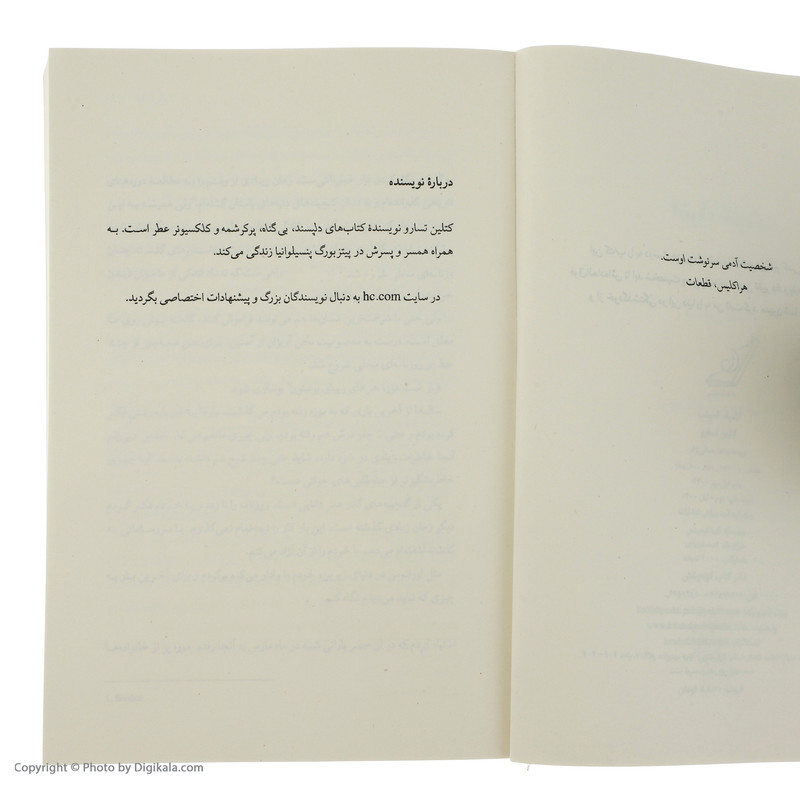 شخصیت آدمی سرنوشت اوست.
هراکلیس، قطعات
دربارهٔ نویسنده
کتلین تسارو نویسندهٔ کتاب‌های دلپسند، بی‌گناه، پرکرشمه و کلکسیونر عطر است. به
همراه همسر و پسرش در پیتزبورگ پنسیلوانیا زندگی می‌کند.
در سایت hc.com به دنبال نویسندگان بزرگ و پیشنهادات اختصاصی بگردید.
Copyright © Photo by Digikala.com